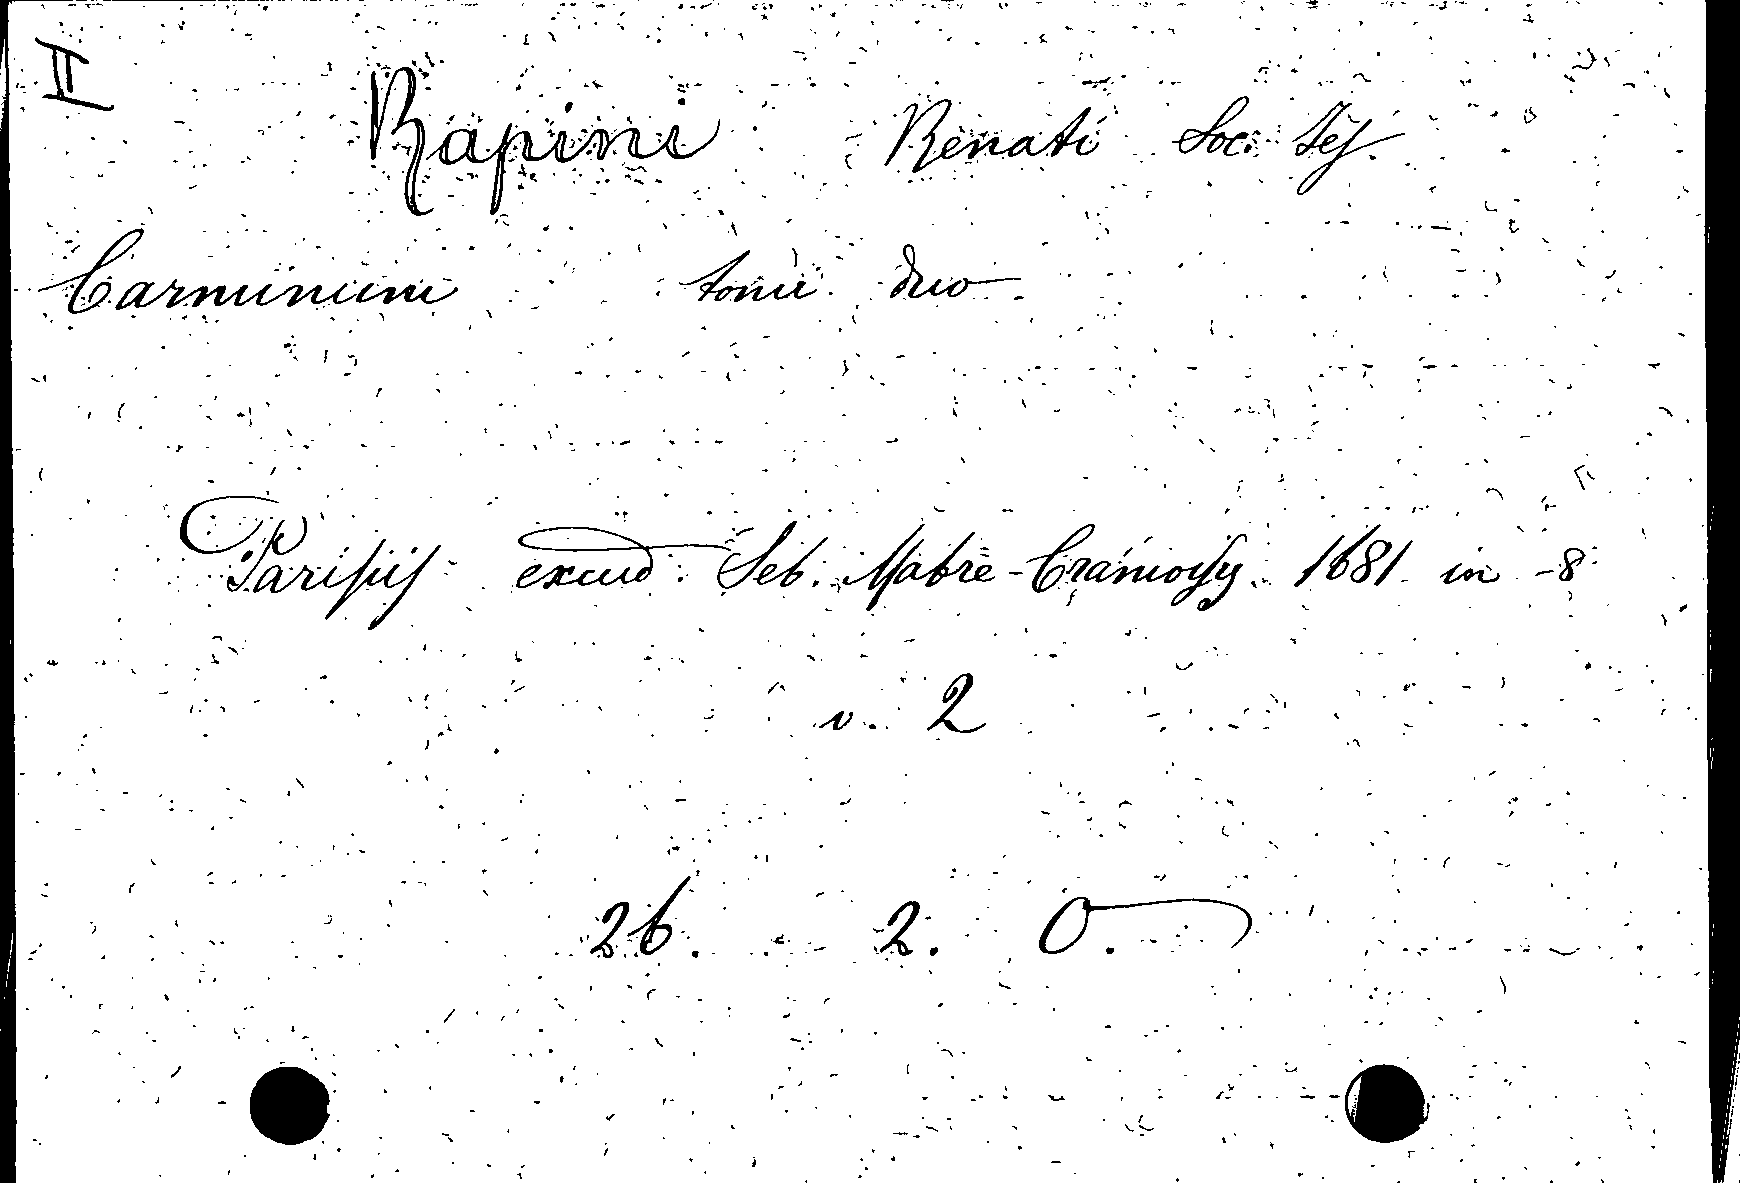 II
Rapini Renati Soc. Jes.
Carminum tomi duo
Parisiis excud. Seb. Mabre-Cramoisy 1681 in -8
v. 2
26. 2. O.